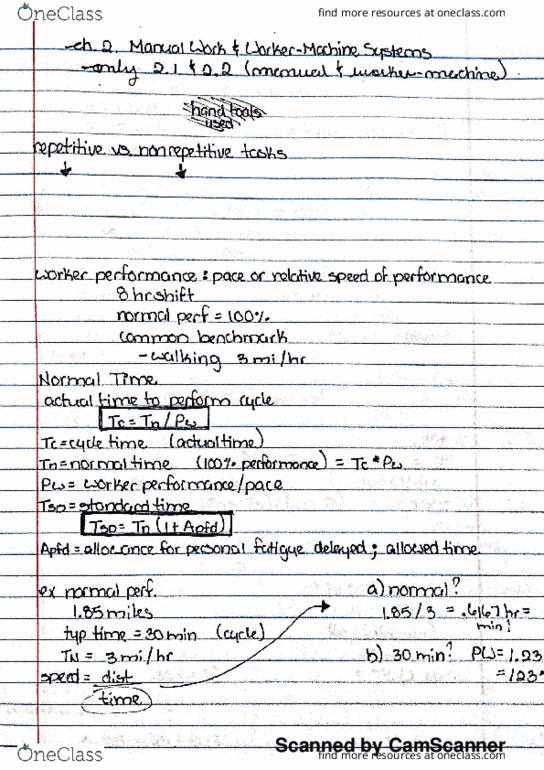 OneClass
find more resources at oneclass.com
-ch 2. Manual Work & Worker-Machine Systems
-only 2.1 & 2.2 (manual & worker-machine)
hand tools
used
repetitive vs. nonrepetitive tasks
worker performance: pace or relative speed of performance
8 hr shift
normal perf = 100%
common benchmark
-walking 3 mi/hr
Normal Time
actual time to perform cycle
Tc = Tn / Pw
Tc = cycle time (actual time)
Tn = normal time (100% performance) = Tc * Pw
Pw = worker performance/pace
TSD = standard time
TSD = Tn (1 + Apfd)
Apfd = allowance for personal fatigue delayed ; allowed time
ex normal perf.
1.85 miles
typ time = 30 min (cycle)
TN = 3 mi/hr
speed = dist
time
a) normal?
1.85 / 3 = .6167 hr =
min?
b) 30 min? PW = 1.23
= 123%
Scanned by CamScanner
OneClass
find more resources at oneclass.com